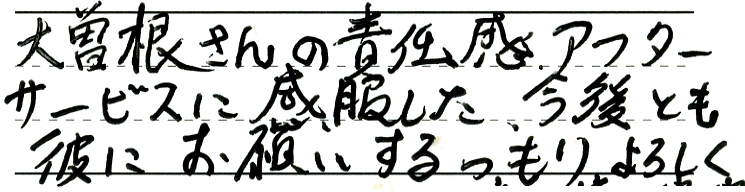 大曽根さんの責任感、アフター
サービスに感服した、今後とも
彼にお願いするつもりよろしく